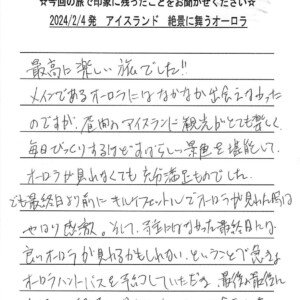 ☆今回の旅で印象に残ったことをお聞かせください☆
2024/2/4発 アイスランド 絶景に舞うオーロラ
最高に楽しい旅でした!!
メインであるオーロラにはなかなか出会えなかった
のですが、昼間のアイスランド観光がとても楽しく、
毎日びっくりするほどすばらしい景色を堪能して、
オーロラが見れなくても充分満足ものでした。
でも最終日より前にキルキュフェットルでオーロラが見れた時は
やはり感激。そして、
最終日
良いオーロラが見れるかもしれない、ということで急きょ
オーロラハントバスを予約していただき、最後の最後に